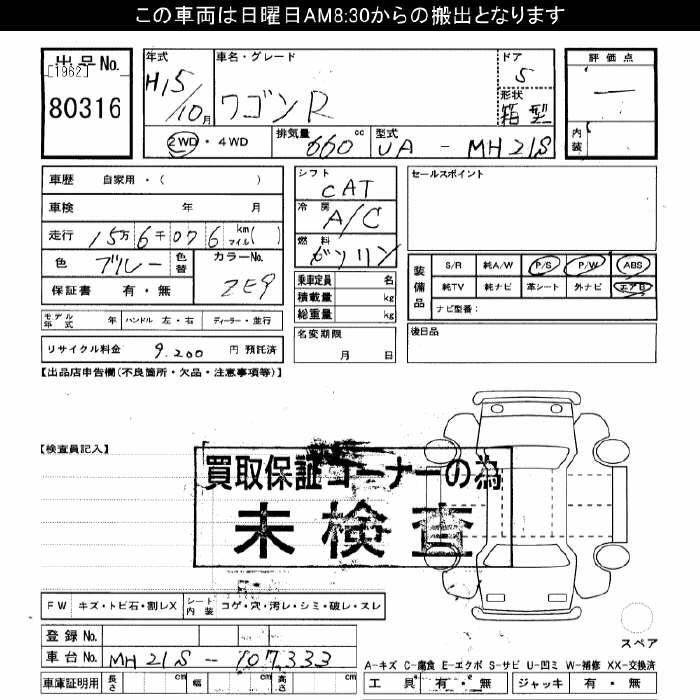 この車両は日曜日AM8:30からの搬出となります
出品No.
[1962]
80316
年式
H15/10月
車名・グレード
ワゴンR
ドア
5
形状
箱型
評価点
内装
2WD・4WD
排気量 660 cc
型式 UA - MH21S
車歴 自家用・( )
車検 年 月
走行 15万6千076 km マイル( )
色 ブルー 色替
カラーNo.
ZE9
保証書 有・無
シフト
CAT
冷房
A/C
燃料
ガソリン
乗車定員 名
積載量 kg
総重量 kg
名変期限
月 日
セールスポイント
装備品
S/R 純A/W P/S P/W ABS
純TV 純ナビ 革シート 外ナビ エアB
ナビ型番:
後日品
モデル年式 年 ハンドル 左・右 ディーラー・並行
リサイクル料金 9,200 円 預託済
【出品店申告欄(不良箇所・欠品・注意事項等)】
【検査員記入】
買取保証コーナーの為
未検査
FW キズ・トビ石・割レX シート内装 コゲ・穴・汚レ・シミ・破レ・スレ
登録No.
車台No. MH21S-107333
車庫証明用 長さ cm 幅 cm 高さ cm
スペア
A-キズ C-腐食 E-エクボ S-サビ U-凹ミ W-補修 XX-交換済
工具 有・無 ジャッキ 有・無